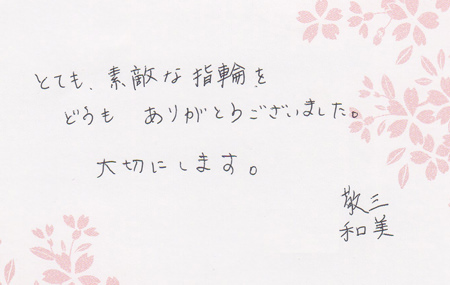 とても、素敵な指輪を
どうも ありがとうございました。
大切にします。
敬三
和美